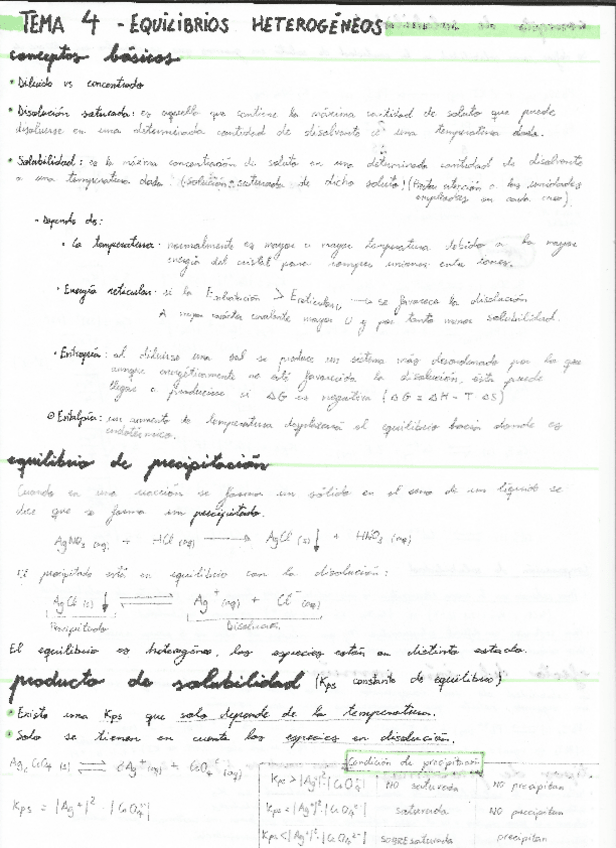 TEMA 4 - EQUILIBRIOS HETEROGÉNEOS
conceptos básicos
• Diluido vs concentrado
• Disolución saturada: es aquella que contiene la máxima cantidad de soluto que puede
disolverse en una determinada cantidad de disolvente a una temperatura dada.
• Solubilidad: es la máxima concentración de soluto en una determinada cantidad de disolvente
a una temperatura dada. (solución saturada de dicho soluto) (Presta atención a las unidades
empleadas en cada caso).
- Depende de:
• La temperatura: normalmente es mayor a mayor temperatura debido a la mayor
energía del cristal para romper uniones entre iones.
• Energía reticular: si la Esolvatación > Ereticular → se favorece la disolución
A mayor carácter covalente mayor U y por tanto menor solubilidad.
• Entropía: al diluirse una sal se produce un sistema más desordenado por lo que
aunque energéticamente no esté favorecida la disolución, ésta puede
llegar a producirse si ΔG es negativa (ΔG = ΔH - T ΔS)
• Entalpía: un aumento de temperatura desplazará el equilibrio hacia donde es
endotérmico.
equilibrio de precipitación
Cuando en una reacción se forma un sólido en el seno de un líquido se
dice que se forma un precipitado.
AgNO₃ (aq) + HCl (aq) → AgCl (s)↓ + HNO₃ (aq)
El precipitado está en equilibrio con la disolución:
AgCl (s)↓ ⇌ Ag⁺ (aq) + Cl⁻ (aq)
Precipitado Disolución
El equilibrio es heterogéneo, las especies están en distinto estado.
producto de solubilidad (Kps constante de equilibrio)
• Existe una Kps que solo depende de la temperatura.
• Solo se tienen en cuenta las especies en disolución.
Condición de precipitación
Kps = |Ag⁺|² · |CrO₄²⁻|
Kps > |Ag⁺|²·|CrO₄²⁻| NO saturada NO precipitan
Kps = |Ag⁺|²·|CrO₄²⁻| saturada NO precipitan
Kps < |Ag⁺|²·|CrO₄²⁻| SOBRESATURADA precipitan